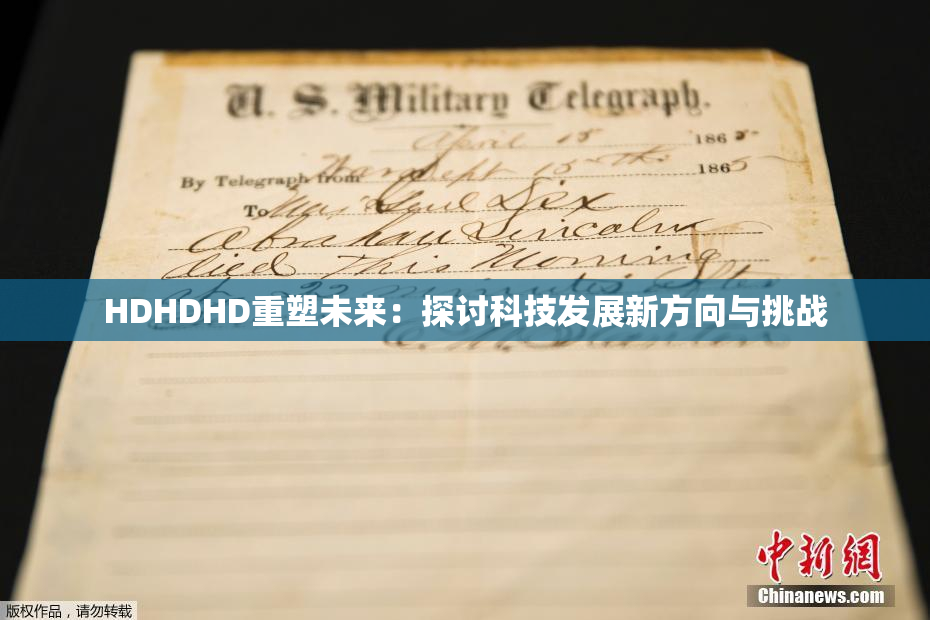 U. S. Military Telegraph.
April 15 1865
By Telegraph from War Dept 15th 1865
To Maj Genl Dix
Abraham Lincoln
died This Morning
22 minutes after
HDHDHD重塑未来：探讨科技发展新方向与挑战
E. M. Stanton
中新网
Chinanews.com
版权作品，请勿转载